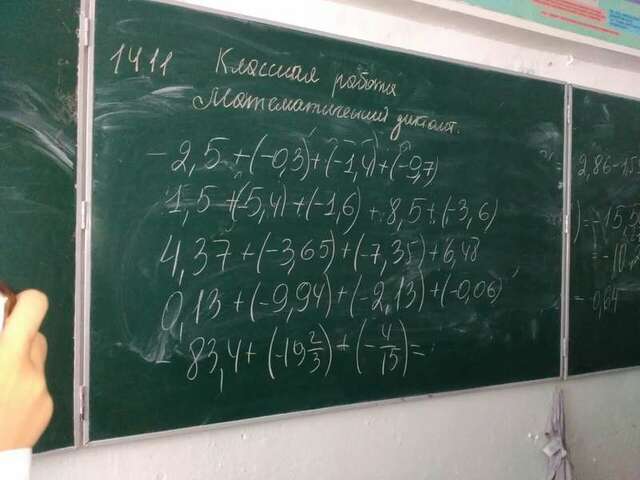 1411 Классная работа
Математический диктант.
-2,5+(-0,3)+(-1,4)+(-9,7)
1,5+(-5,4)+(-1,6)+8,5+(-3,6)
4,37+(-3,65)+(-7,35)+6,48
0,13+(-9,94)+(-2,13)+(-0,06)
-83,4+(-19 2/3)+(-4/15)=